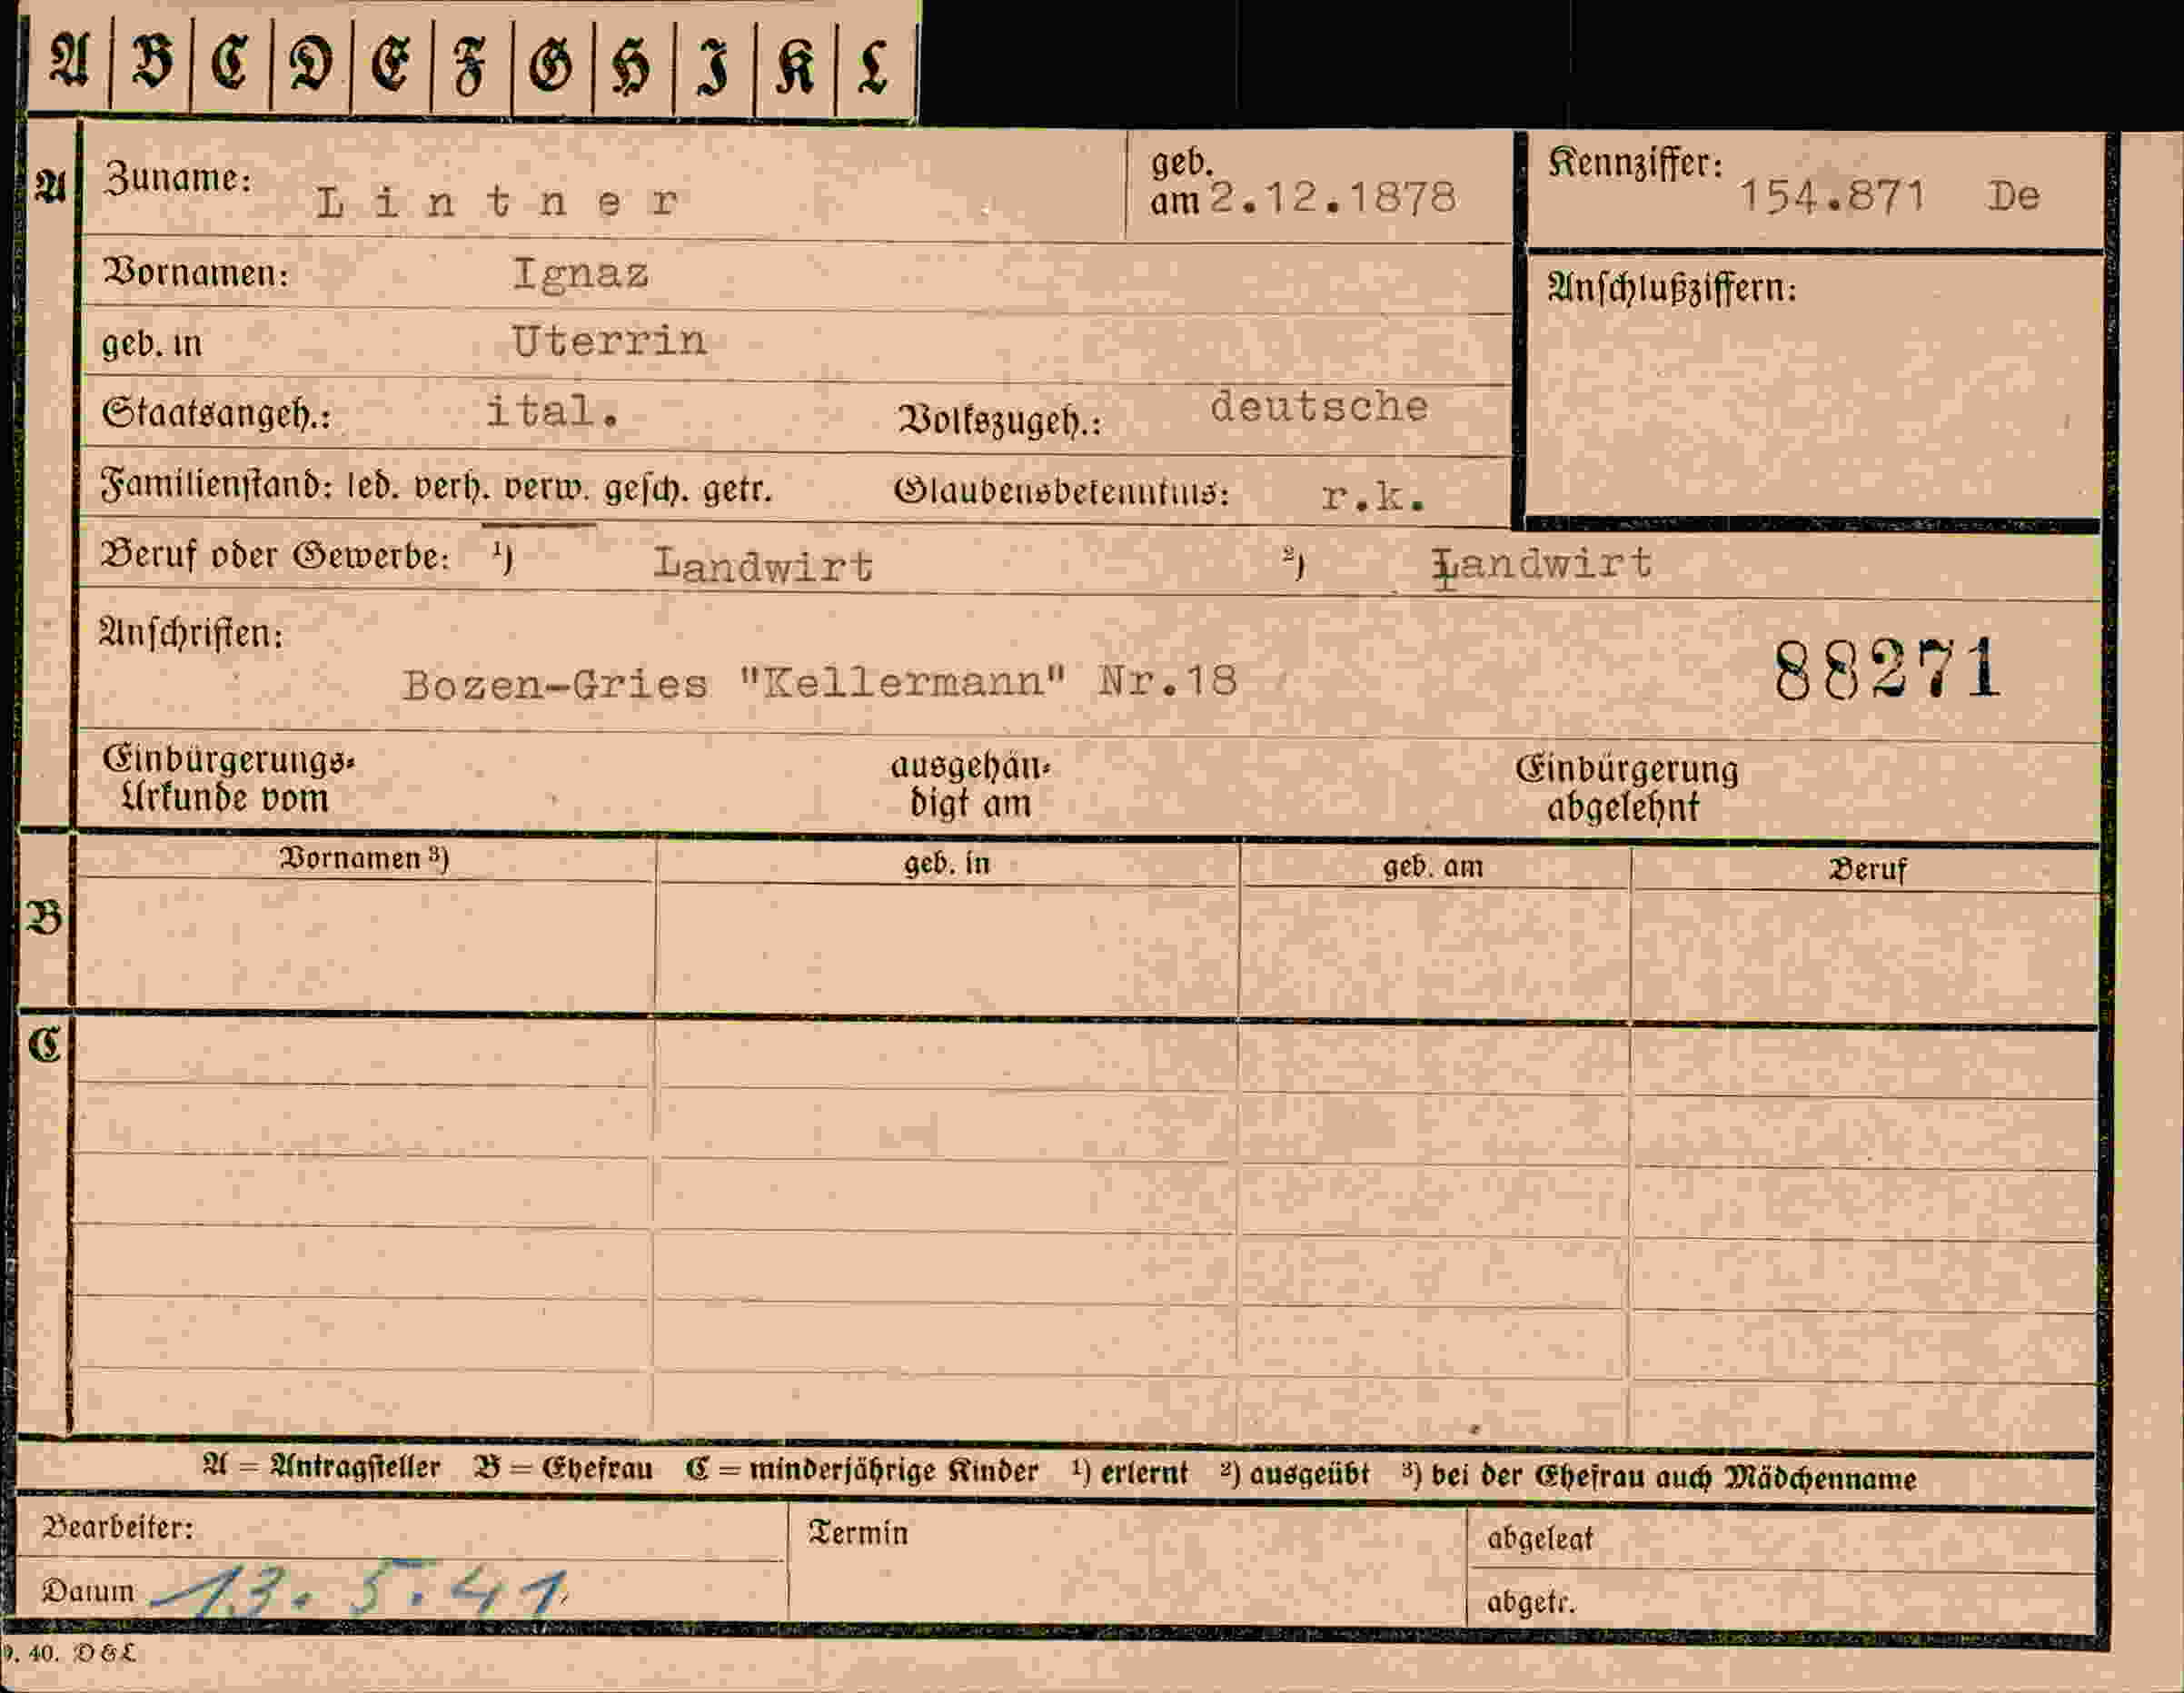 A B C D E F G H I K L
A Zuname: Lintner geb. am 2.12.1878 Kennziffer: 154.871 De
Vornamen: Ignaz Anschlußziffern:
geb. in Uterrin
Staatsangeh.: ital. Volkszugeh.: deutsche
Familienstand: led. verh. verw. gesch. getr. Glaubensbekenntnis: r.k.
Beruf oder Gewerbe: ¹) Landwirt ²) Landwirt
Anschriften:
Bozen-Gries "Kellermann" Nr.18 88271
Einbürgerungs- ausgehän- Einbürgerung
Urkunde vom digt am abgelehnt
Vornamen ³) geb. in geb. am Beruf
B
C
A = Antragsteller B = Ehefrau C = minderjährige Kinder ¹) erlernt ²) ausgeübt ³) bei der Ehefrau auch Mädchenname
Bearbeiter: Termin abgelegt
Datum 13.5.41 abgetr.
9. 40. D & L